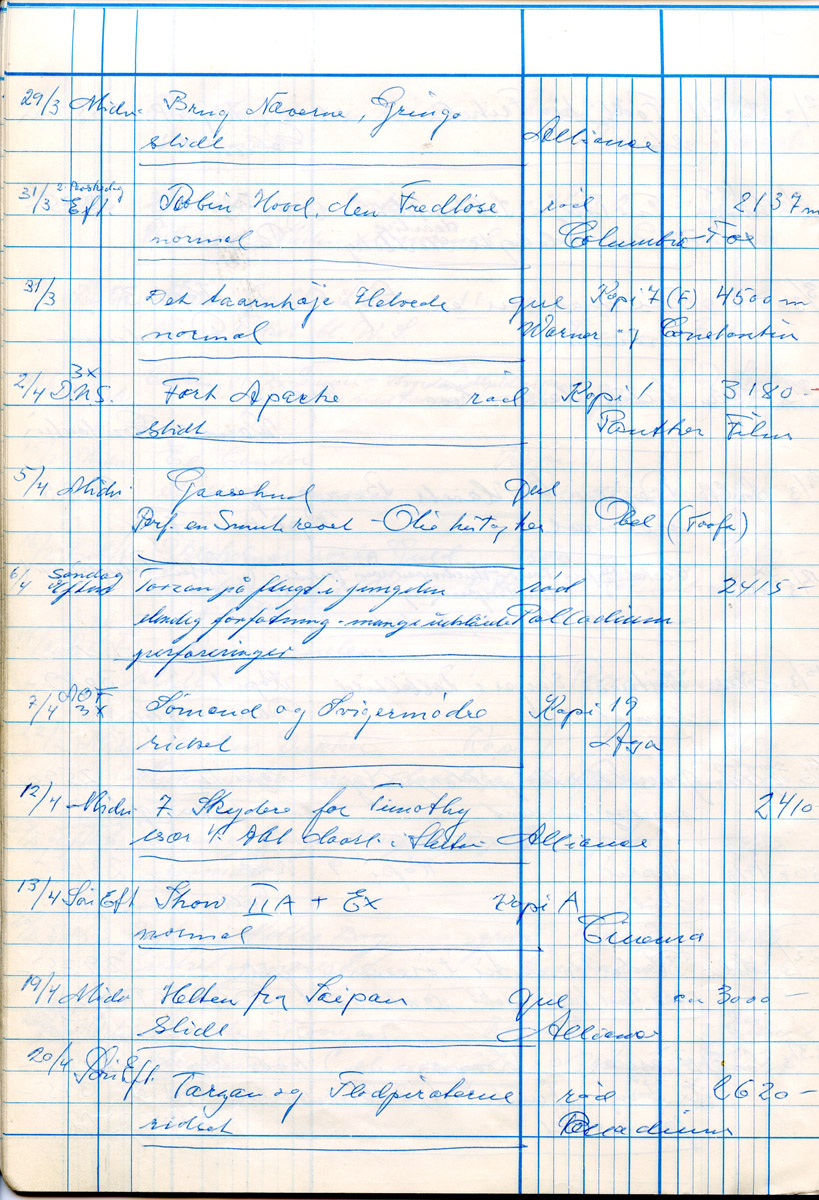 29/3 Midn. Brug Næverne, Gringo
slidt Alliance
31/3 2. Påskedag Eft. Robin Hood, den Fredløse rød 2137 m
normal Columbia-Fox
31/3 Det taarnhøje Helvede gul Kopi 7 (F) 4500 m
normal Warner og Constantin
2/4 3x D.N.S. Fort Apache rød Kopi 1 3180 -
slidt Panther Film
5/4 Midn. Gaasehud gul
Perf. en Smule revet - Olie Obel (Toofa)
6/4 Søndag Eftm Tarzan på flugt i junglen rød 2415 -
elendig forfatning - mange Palladium
perforeringer
7/4 AOF 3x Sømænd og Svigermødre Kopi 19
ridset Aga
12/4 Midn. 7 Skydere for Timothy 2410
især 1. Akt i Alliance
13/4 Søn Eft Show II A + Ex Kopi A
normal Cinema
19/4 Midn Helten fra Saipan gul ca 3000 -
slidt Alliance
20/4 Søn Eft. Tarzan og Flodpiraterne rød 2620 -
ridset Palladium